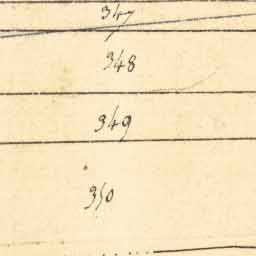 347
348
349
350